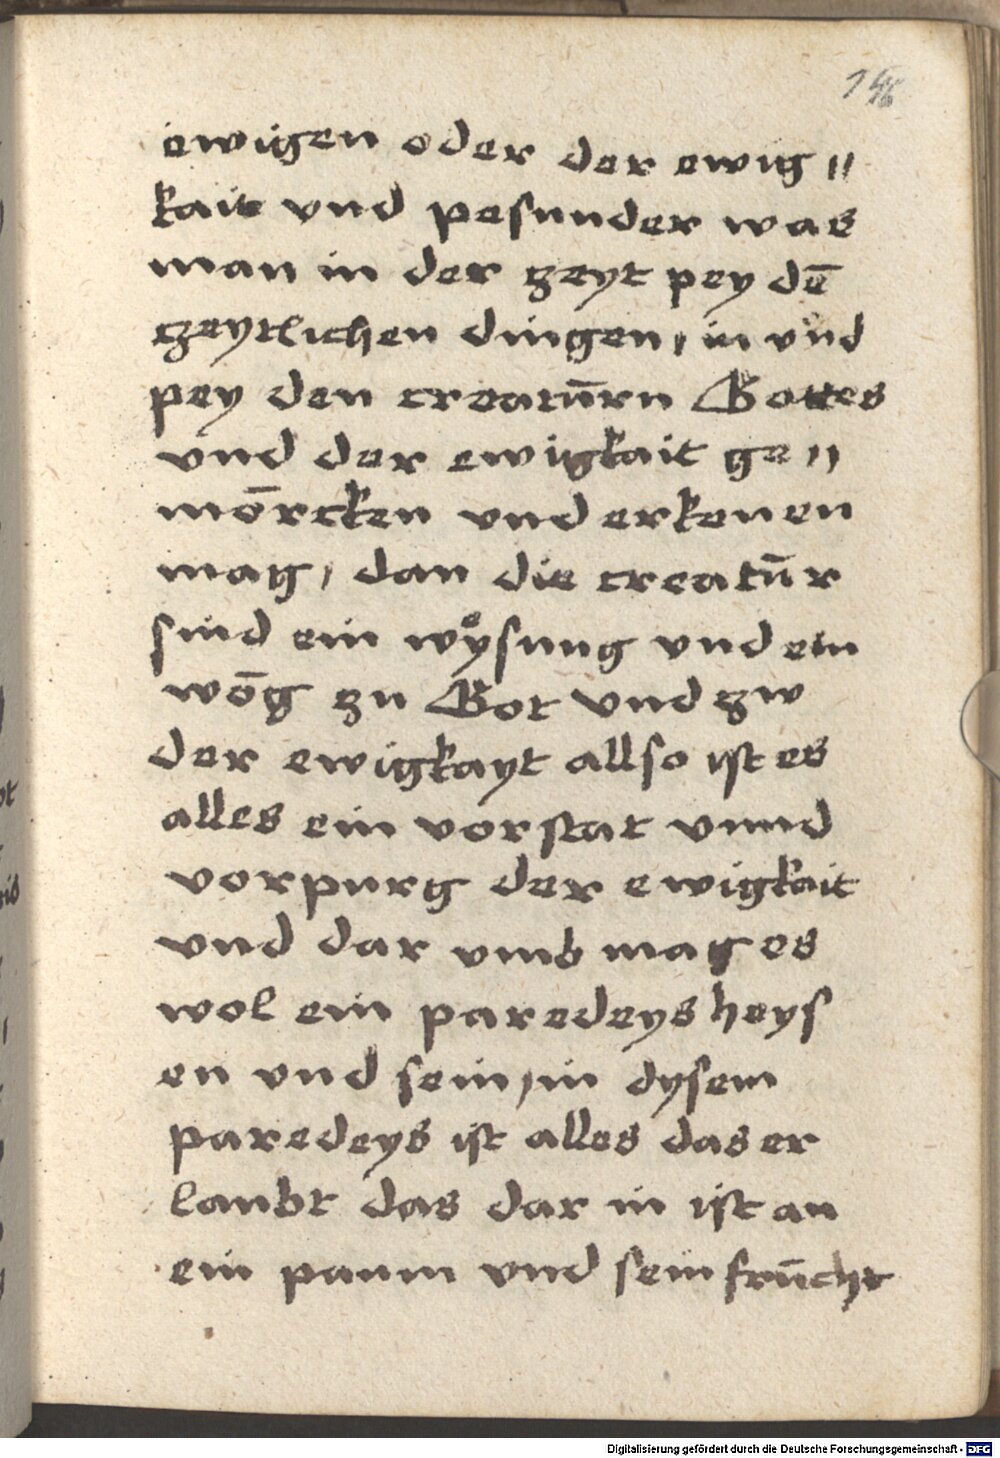 146
ewigen oder der ewig〃
kait vnd pesunder was
man in der zeyt pey dē
zeytlichen dingen, in vnd
pey den creatūrn Gottes
vnd der ewigkait ge〃
mōrcken vnd erkenen
mag, dan die creatūr
sind ein wÿsung vnd ein
wōg zu Got vnd zw
der ewigkayt allso ist es
alles ein vorstat vnnd
vorpurg der ewigkait
vnd dar vmb mag es
wol ein paredeys heys
en vnd sein, in dysem
paredeys ist alles das er
laubt das dar in ist an
ein paum vnd sein frūcht
Digitalisierung gefördert durch die Deutsche Forschungsgemeinschaft - DFG